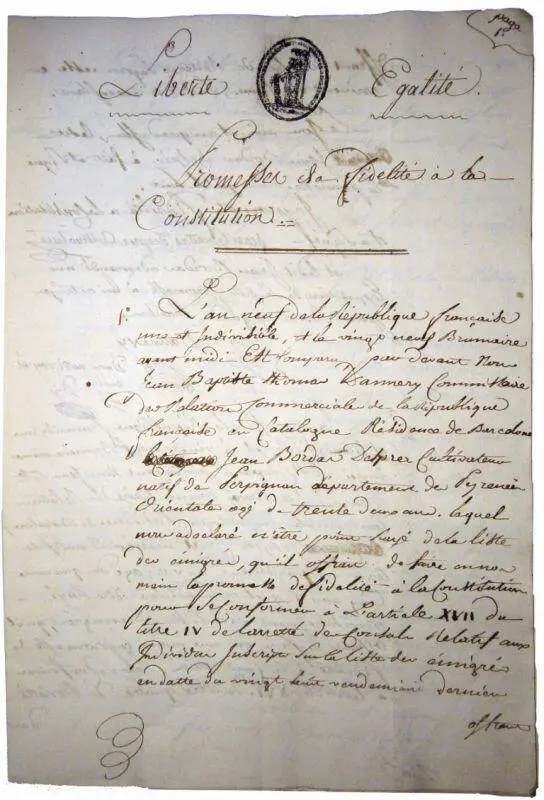 page
1e
Liberté Egalité.
Promesses de fidelité à la
Constitution.
1.
L'an neuf de la République française
une et Indivisible, et le vingt neuf Brumaire
avant midi Est Comparu par devant Nous
Jean Baptiste Thomas Lannery Commissaire
des Relations Commerciales de la République
française en Catalogne Résidence de Barcelone
Jean Bordas Daprer Cultivateur
natif de Perpignan département de Pyrenées
Orientales agé de trente deux ans. lequel
nous a declaré n'être point rayé de la liste
des emigrés, qu'il offrait de faire en nos
mains la promesse de fidelité à la Constitution
pour Se Conformer à L'article XVII du
titre IV de L'arreté des Consuls Relatif aux
Individus Inscripts Sur la liste des émigrés
en datte du vingt huit vendemiaire dernier
offrant